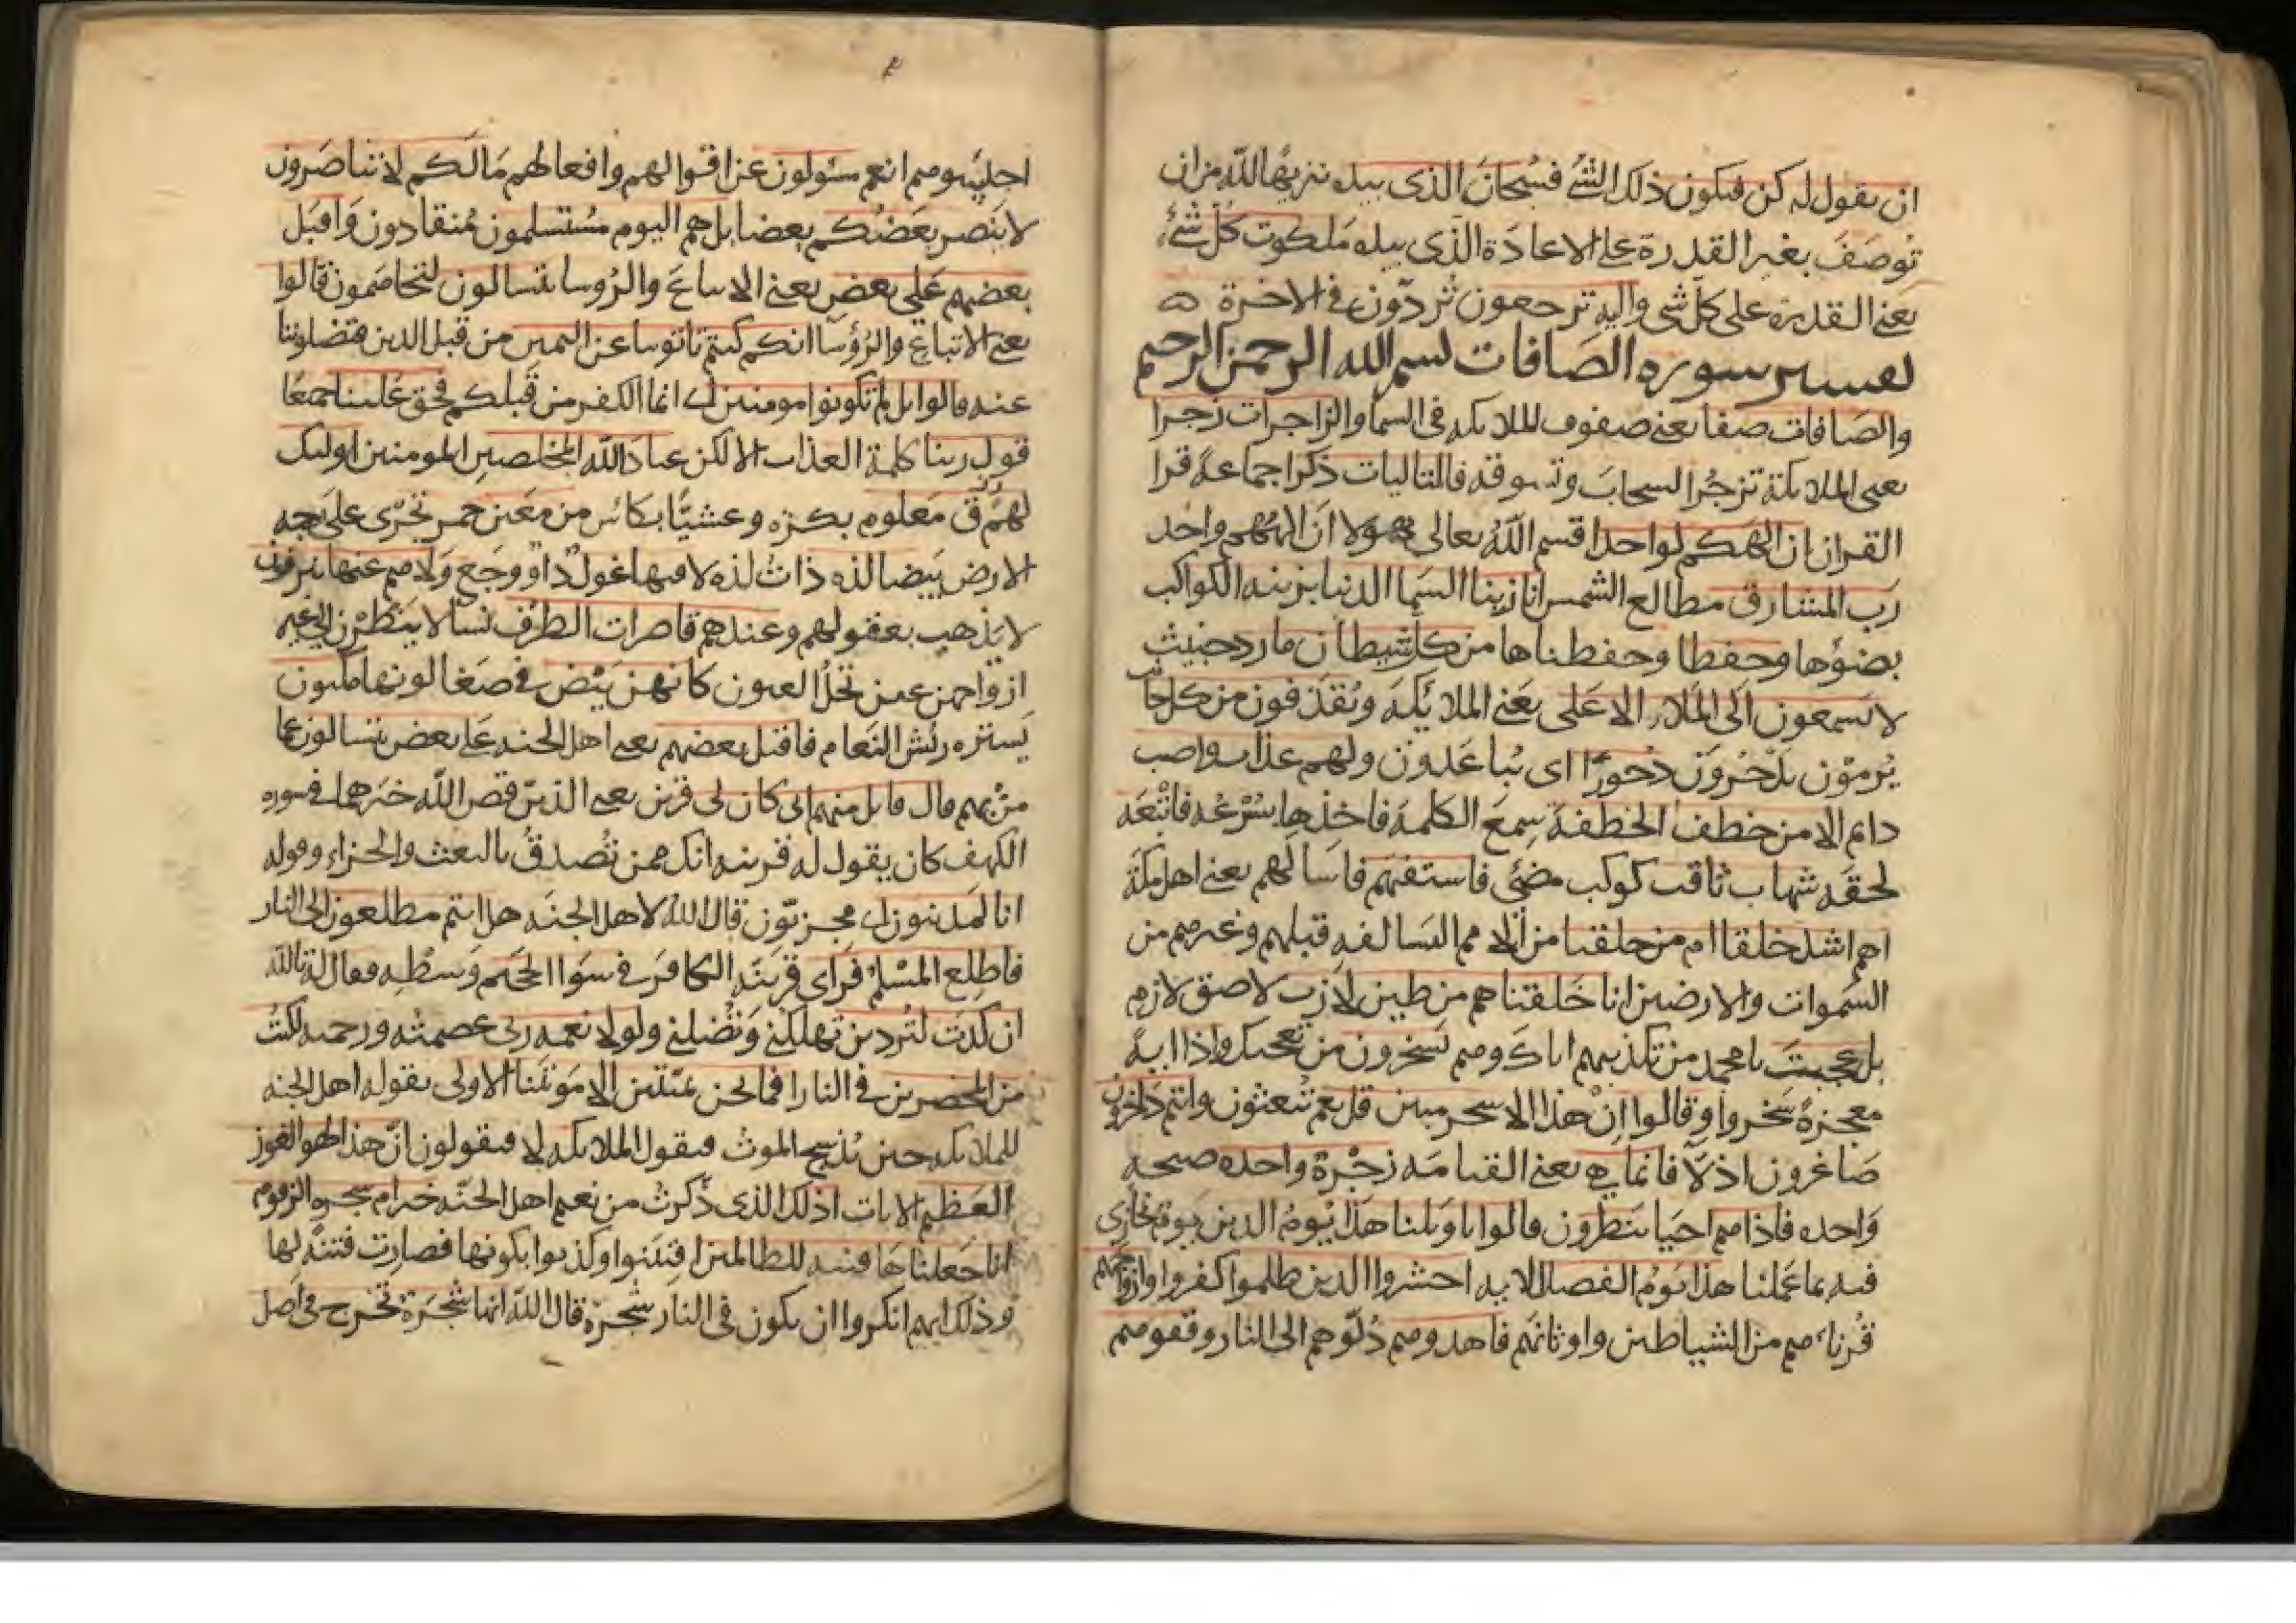 ان يقول له كن فيكون ذلك الشئ فسُبحانَ الذى بيده تنزيهًا لله من ان
تُوصَفَ بغير القدرة على الاعادَة الذى بيده مَلكوت كُل شئ
يعنى القدرة على كل شى واليه ترجعون تُردّون فى الاخرة
تفسير سوره الصَافات بسم الله الرحمن الرحيم
والصَافات صفا يعنى صفوف الملايكه فى السما والزاجرات زجرا
يعنى الملايكة تزجُر السحابَ وتسوقه فالتاليات ذكرا جماعة قرا
القران ان الهَكم لواحد اقسم اللّهُ تعالى بهولا ان الههم واحد
رَب المشارق مطالع الشمس انا زينا السَما الدنيا بزينه الكواكب
بضوُها وحفظا وحفظناها من كل شيطان مارد خبيث
لا يسمعون اَلى المَلاء الاعَلى يعَنى الملايَكَه ويُقذَفون من كل جانب
يُرمَوْن يَدْحُرُونَ دُحورًا اى يُباعَدون ولهم عذاب واصب
دايم الا من خطف الخطفة سِمعَ الكلمة فاخذها بسُرْعُه فاتْبعَه
لحقه شهاب ثاقب كوكب مضئى فاستفتهم فاسَالهم يعنى اهل مكة
اهم اشد خلقا ام من خلقنا من الامم السَالفه قبلهم وغيرهم من
السَموات والارضين انا خَلقناهم من طين لازب لاصق لازم
بل عجبتَ يا محمد من تكذيبهم اياكَ وهم يَسخرون من تعجبك واذا ايةً
معجزةً سَخروا وقالوا اِنْ هذا الا سحر مبين قل نعم تُبعثون وانتم دَاخرون
صَاغرون اذلاّ فانما هى يعنى القيامَه زجْرة واحده صيحه
وَاحده فاذا هم احيَا ينظرون قالوا يا وَيلنا هذا يَومُ الدين يَوم نجازى
فيه بما عَملنا هذا يَومُ الفصل الايه احشروا الدين ظلموا كفروا وازواجهم
قُرناءهم من الشياطين واوثانهم فاهدوهم دُلّوهم الى النار وقفوهم
احبسُوهم انهم مسئولون عن اقوالهم وافعالهم مَا لَكم لا تناصَرون
لا يَنصر بعَضُكم بعضا بل هم اليوم مُستسلمون مُنقادون وَاقبَل
بعضهم عَلى بعَض يعنى الاتباعَ والرُوسا يتسالون يتخاصَمون قالوا
يعنى الاتباع والرُؤسآ انكم كنتم تاتوننا عن اليمين من قبل الدين فتضلوننا
عنه قالوا بل لم تكونوا مومنين اى انما الكفر من قبلكم فحق عَلينا جميعًا
قول ربنا كلمة العذاب الا لكن عبادَ الله المخلصين المومنين اوليك
لهم رزق مَعلوم بكرَه وعشيًّا بكائس من معَين خمر تجرى عَلى وجه
الارض بَيضا لذه ذاتُ لذه لا فيها غول دآ ووجَع وَلا هم عنها ينزفون
لا يَذهب بعقولهم وعندهم قاصرات الطرْف نسَآ لا ينَظرْن الى غير
ازواجهن عين نُجلُ العيون كانهن بَيْض فى صَفا لونها مكنون
يَستره ريْش النَعام فاقبل بعضهم يعنى اهل الجنه عَلى بعض يتسالون عما
مرّ بهم قال قايل منهم انى كان لى قرين يعنى الذيْن قَص اللّه خبَرهما فى سوره
الكهف كان يقول له قرينه انك لممن تُصدقُ بالبعث والجزاء وقوله
انا لمَدينون اى مجزيّون قال اللّه لاهل الجنَه هل انتم مطلعون الى النار
فاطلع المسْلم فَراى قَرينَه الكافرَ فى سَوَا الجَحيم وَسطْه فقال له تالله
ان كِدْتَ لتُردين تهلكنى وَتُضلنى ولولا نعمه ربى عصمتُه ورحمته لكنتُ
من المحضرين فى النار افما نحن بميّتين الا مَوتتنا الاولى يقوله اهل الجنه
للملايكه حين يُذبح الموتُ فيقول الملايكه لا فيقولون انّ هذا لهو الفوز
العَظيم الايات اذلك الذى ذَكرتُ من نعيم اهل الجنّه خير ام شجره الزقوم
انا جَعلناهَا فتنه للظالمين افتتنوا وكذبوا بكونها فصارت فتنةً لها
وذلك انهم انكروا ان يكون فى النار شجَرَة قال اللّه انها شَجَرَة تَخرج فى اصل